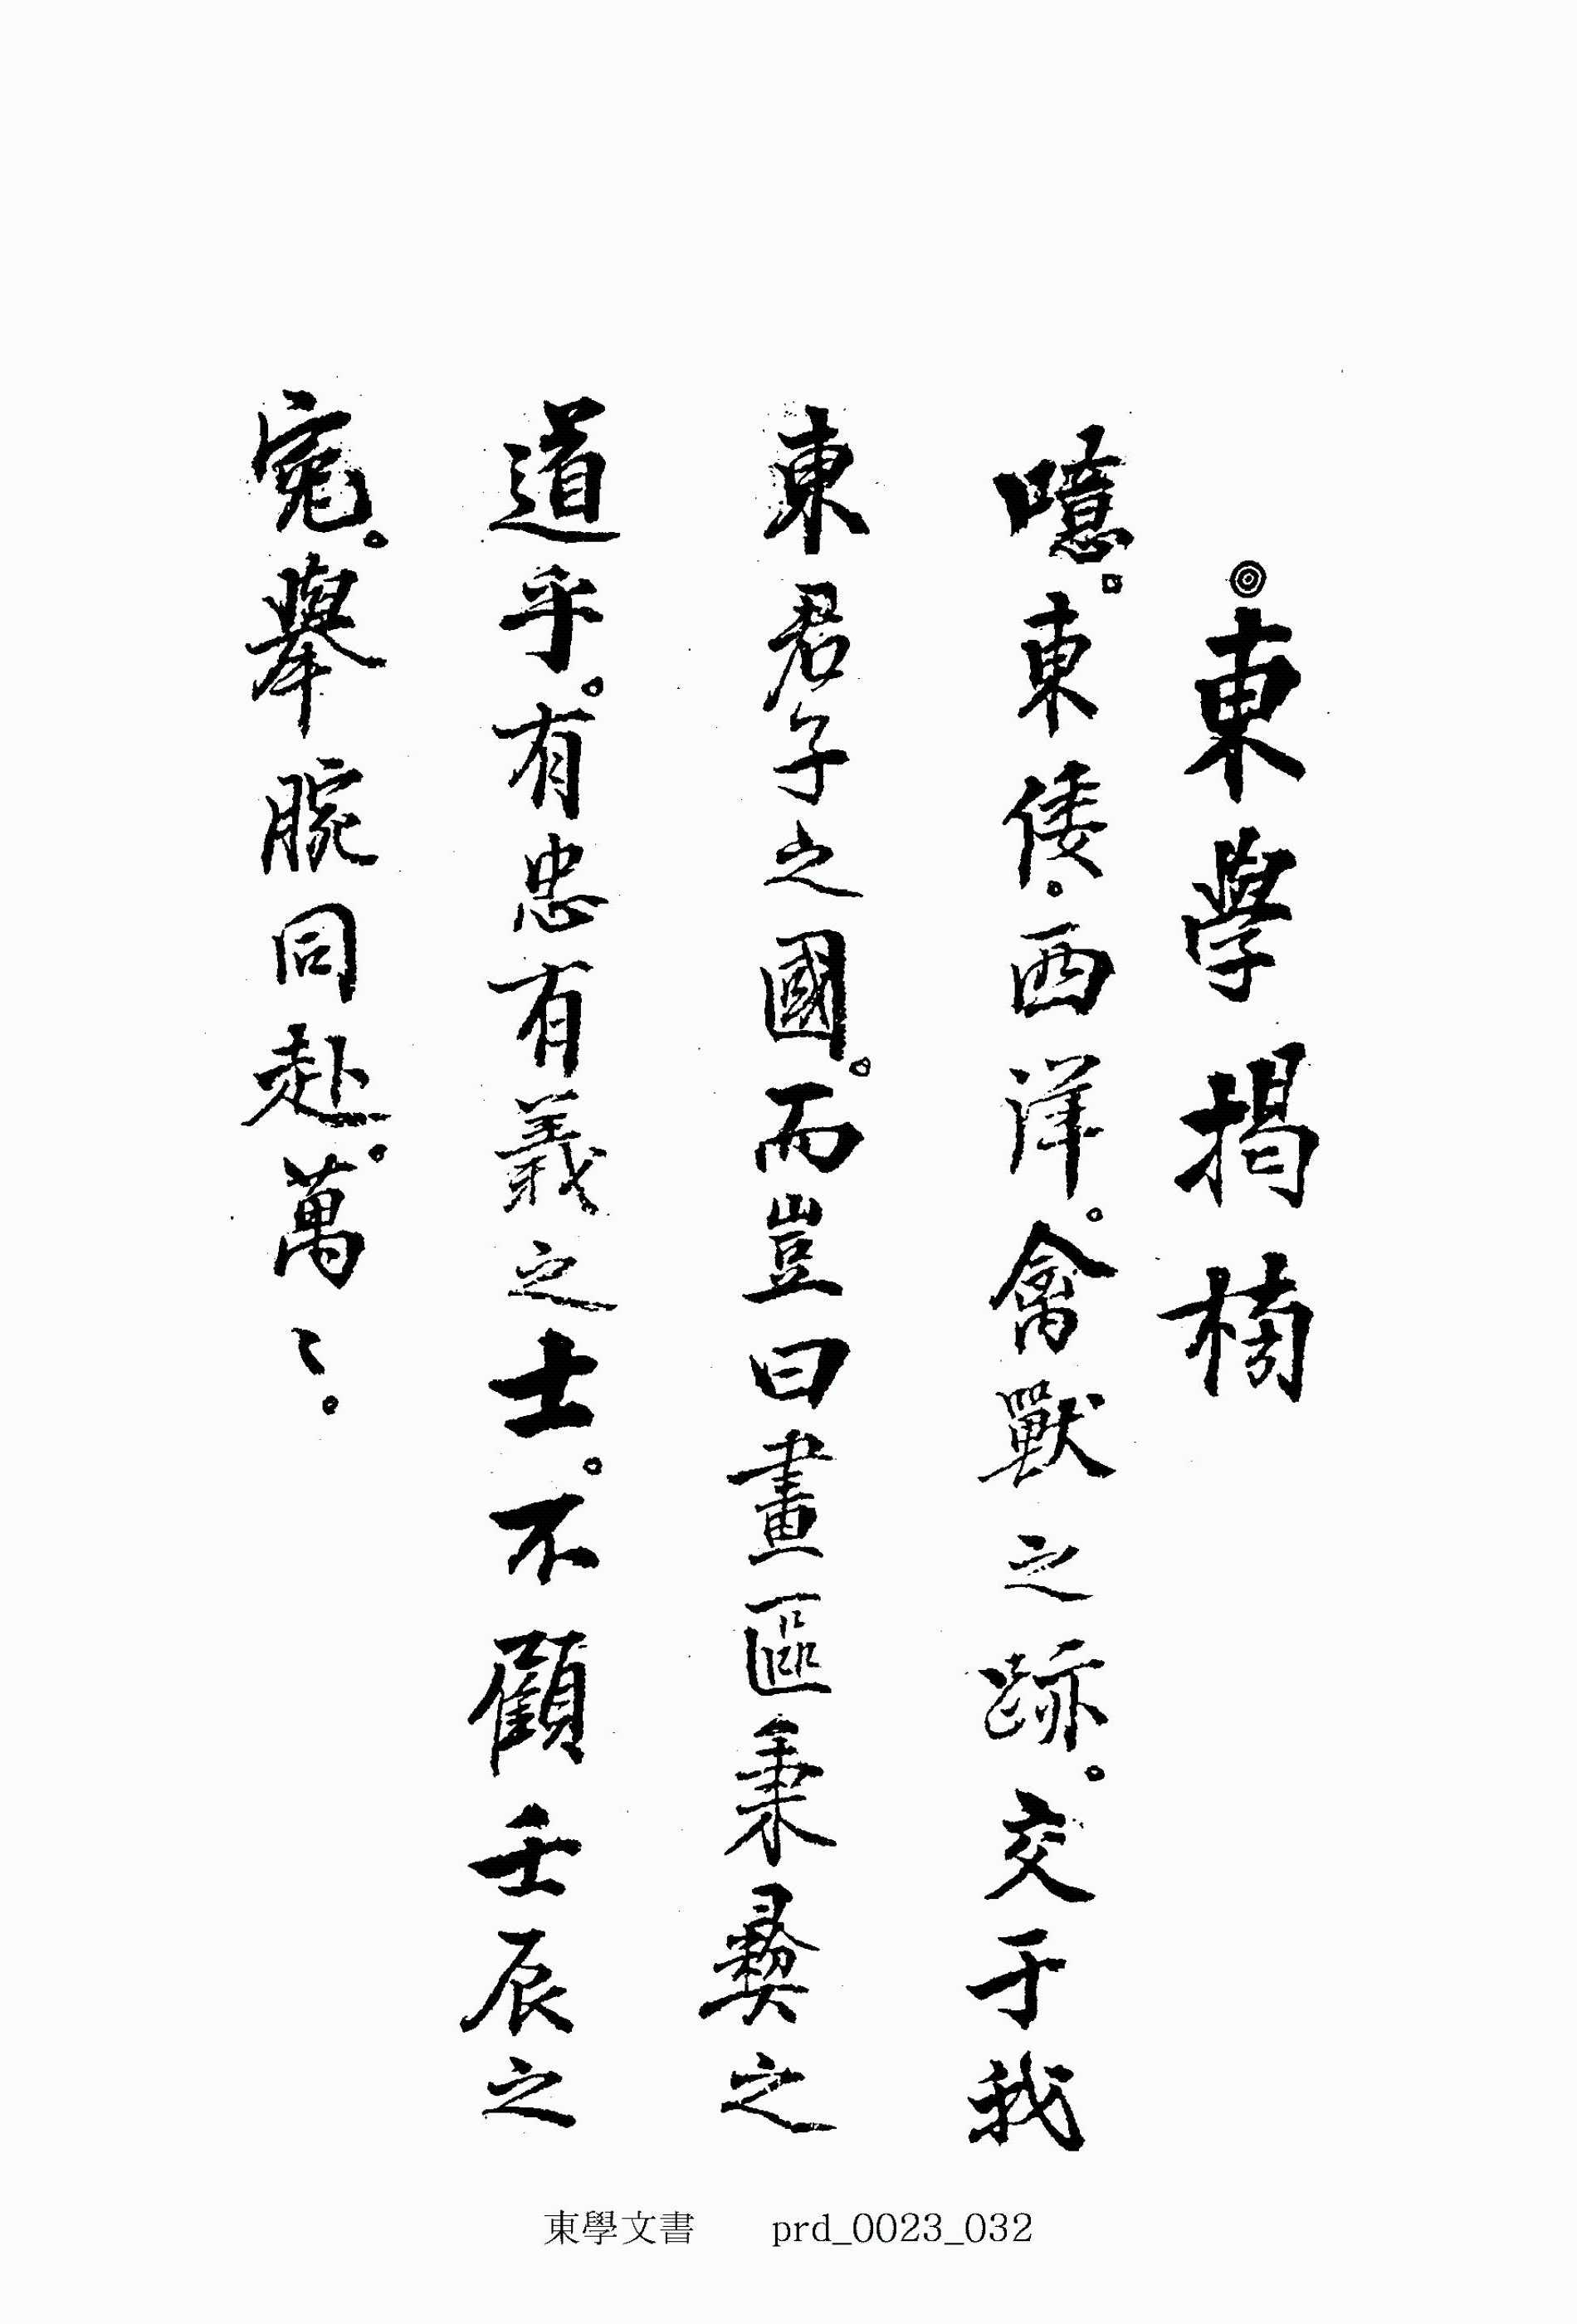 ◎東學揭榜
噫。東倭。西洋。禽獸之跡。交于我
東君子之國。而豈曰畫區秉彛之
道乎。有忠有義之士。不顧壬辰之
寃。擧腕同赴。萬〻。
東學文書 prd_0023_032